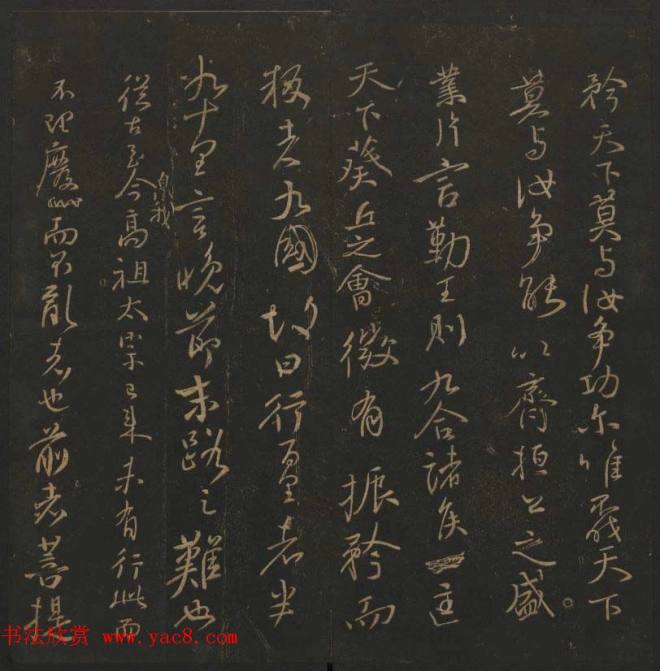 矜天下莫与汝争功尔唯不伐天下
莫与汝争能以齊桓公之盛
業片言勤王則九合諸侯一匡
天下葵丘之會微有振矜而
叛者九國故曰行百里者半
九十里言晚節末路之難也
從古至今泉我高祖太宗已来未有行此而
不理廢而不亂者也前者菩提
书法欣赏 www.yac8.com